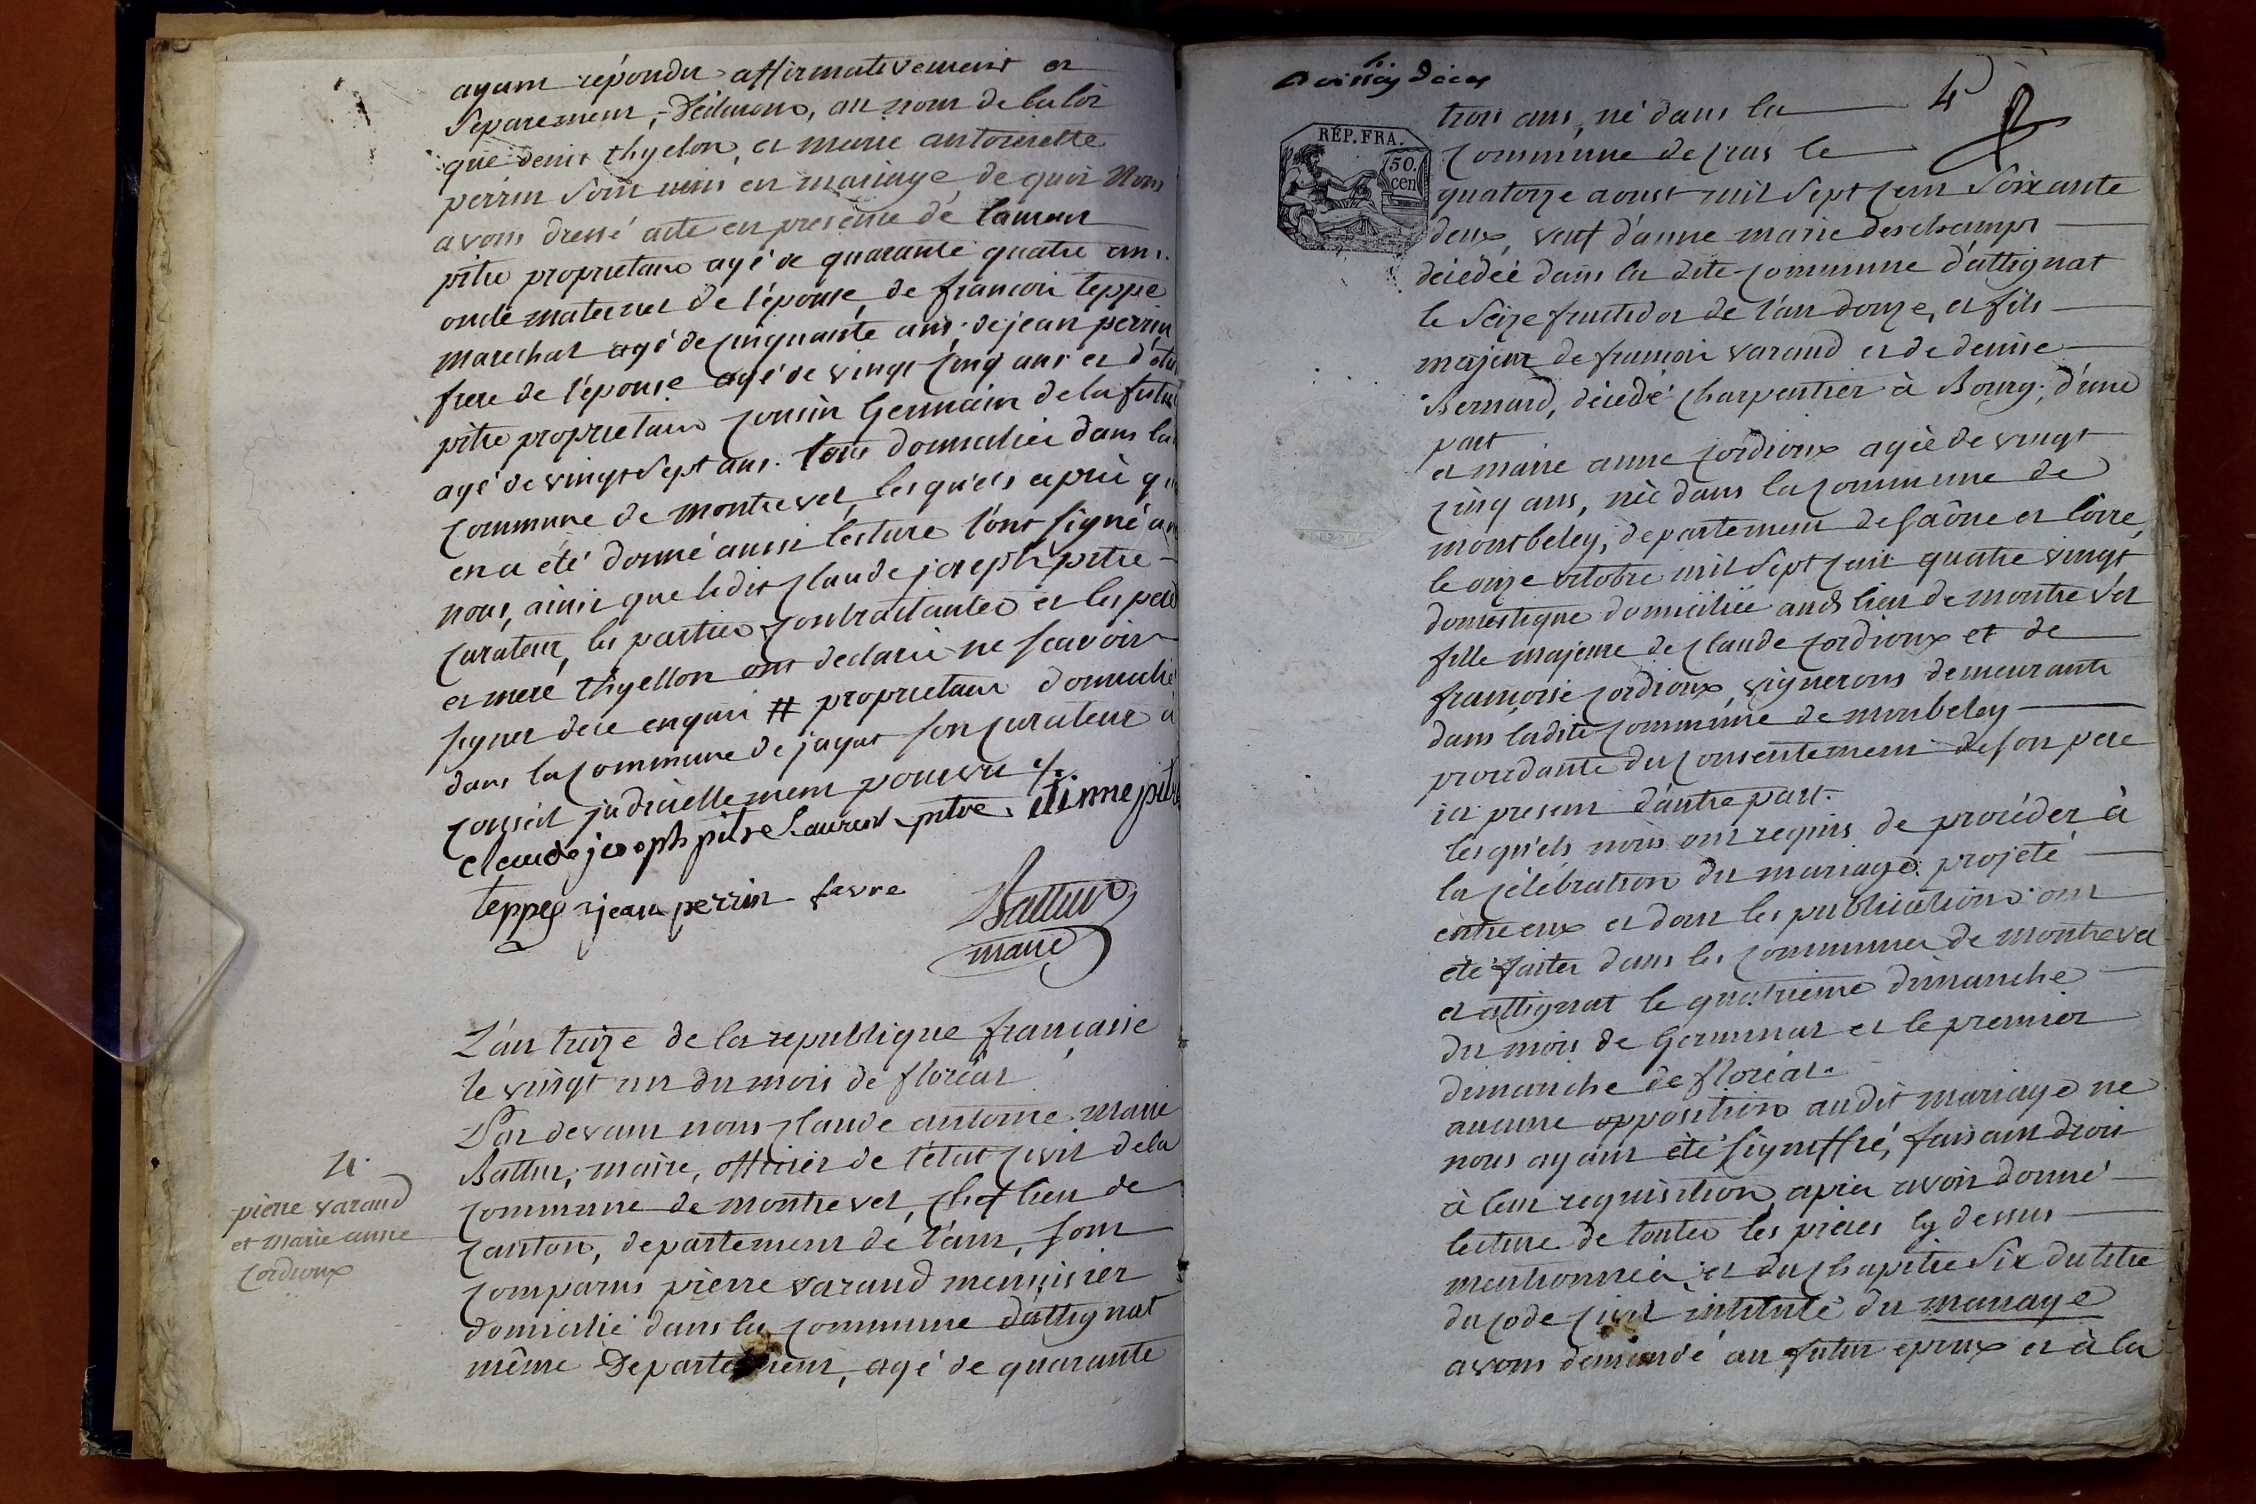 ayant répondu affirmativement et
séparement, déclarons, au nom de la loi
que denis thyelon, et marie antoinette
perrin sont unis en mariage, de quoi nous
avons dressé acte en presence de laurent
pitre proprietaire agé de quarante quatre ans.
oncle maternel de l'épouse, de françois teppe
marechal agé de cinquante ans, de jean perrin
frere de l'épouse agé de vingt cinq ans et d'étie
pitre proprietaire cousin Germain de la futu
agé de vingt sept ans. tous domiciliés dans la
commune de montrevel, lesquels après qu
en a été donné aussi lecture l'ont signé av
nous, ainsi que ledit claude joseph pitre
curateur, les parties contractantes et les pere
et mere thyellon ont declaré ne scavoir
signer de ce enquis # proprietaire domicilié
dans la commune de jayat son curateur a
conseil judiciellement pourvu
claude joseph pitre laurent pitre étienne pitr
teppe jean perrin favre
Battur
maire
L'an treize de la republique française
le vingt un du mois de floréal
Par devant nous claude antoine marie
Battur, maire, officier de l'état civil de la
commune de montrevel, chef lieu de
canton, departement de l'ain, sont
4.
pierre varand
et marie anne
cordioux
comparus pierre varand menuisier
domicilié dans la commune d'attignat
même Departement, agé de quarante
4
RÉP. FRA.
50.
cen
trois ans, né dans la
commune de cras le
quatorze aoust mil sept cent soixante
deux, veuf d'anne marie deschamps
décédée dans la dite commune d'attignat
le seize fructidor de l'an douze, et fils
majeur de françois varand et de denise
Bernard, décédé charpentier à Bourg, d'une
part
et marie anne cordioux agée de vingt
cinq ans, née dans la commune de
montbeley, departement de saône et loire,
le onze octobre mil sept cent quatre vingt
domestique domiciliée aud lieu de montrevel
fille majeure de claude cordioux et de
françoise cordioux, vignerons demeurants
dans ladite commune de monbeley
procedante du consentement de son pere
ici present d'autre part.
lesquels nous ont requis de procéder à
la célébration du mariage projeté
entre eux et dont les publications ont
été faites dans les communes de montrevel
et attignat le quatrieme dimanche
du mois de Germinal et le premier
dimanche de floréal.
aucune opposition audit mariage ne
nous ayant été signiffié, faisant droit
à leur requisition, après avoir donné
lecture de toutes les pieces cy dessus
mentionnées, et du chapitre six du titre
du code civil intitulé du mariage
avons demandé au futur epoux et à la